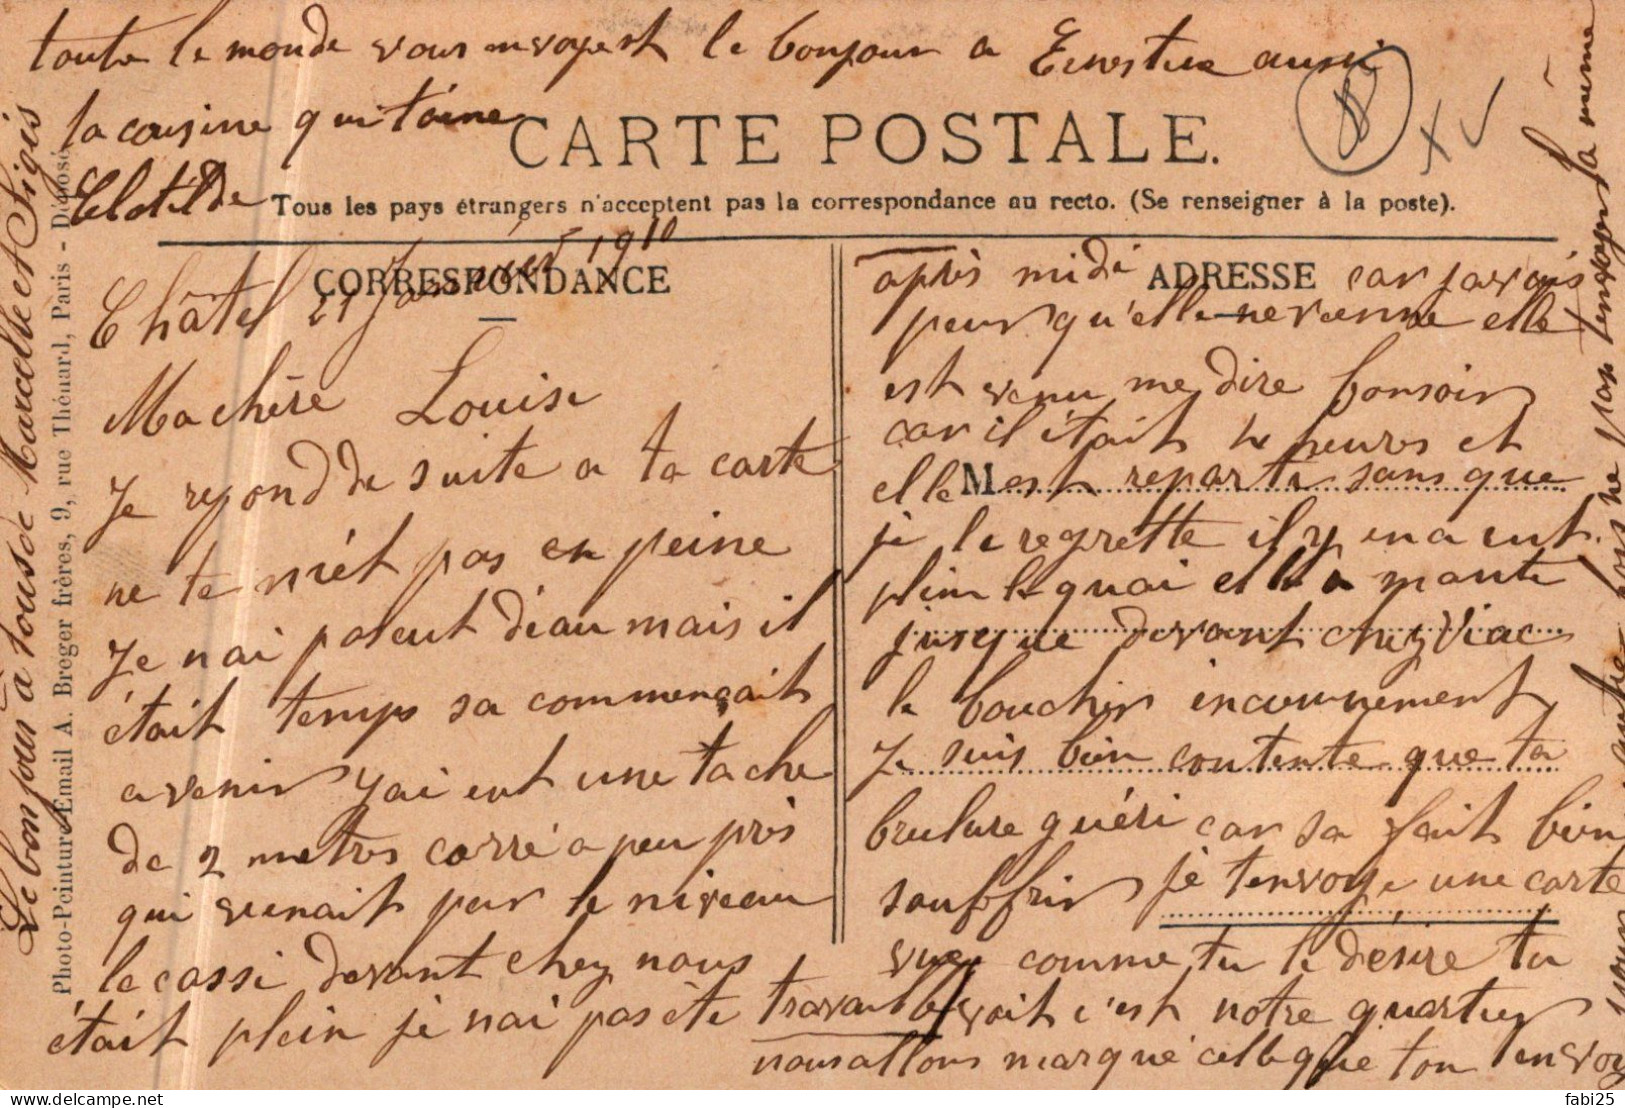 toute le monde vous envoyent le bonjour a Ernestine aussi
la cousine qui t'aime
Clotilde
CARTE POSTALE.
Tous les pays étrangers n'acceptent pas la correspondance au recto. (Se renseigner à la poste).
CORRESPONDANCE
Châtel 21 Janvier 1910
Ma chère Louise
Je repond de suite a ta carte
ne te met pas en peine
Je n'ai pas eut d'eau mais il
était temps sa commençait
a venir j'ai eut une tache
de 2 metres carré a peu près
qui venait par le niveau
le cassi devant chez nous
était plein je n'ai pas ète travailler
ADRESSE
après midi car j'avais
peur qu'elle ne vienne elle
est venu me dire bonsoir
car il était heures et
M
elle est reparti sans que
je le regrette il y en a eut
plein le quai elle a monté
jusque devant chez Viac
le boucher
Je suis bien contente que ta
brulure guéri car sa fait bien
souffrir je t'envoye une carte
vue comme tu le désire tu
voit c'est notre quartier
nous allons marqué celle que l'on t'envoy
pour ne pas t'envoyer la même
Le bonjour à tous de Marcelle et Sigis
Photo-Peinture Email A. Breger frères, 9, rue Thénard, Paris - Déposé
fabi25